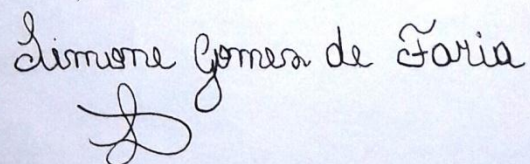 Simone Gomes de Faria